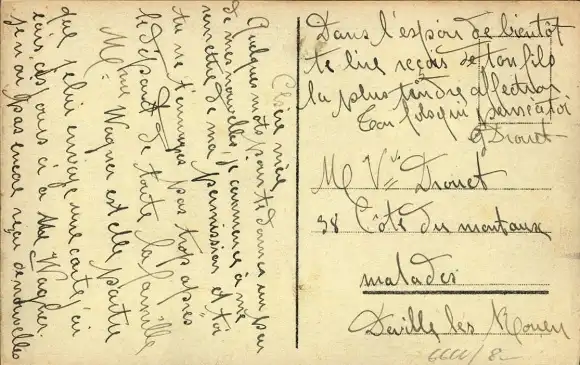 Chère mère,
Quelques mots pour te donner un peu
de mes nouvelles, je commence à me
remettre de ma permission et toi
tu ne t'ennuyes pas trop après
le départ de toute la famille
Mme Wagner est elle partie
que je lui envoye une carte, j'ai
écris ces jours ci à Mr Wagner.
je n'ai pas encore reçu de nouvelles
Dans l'espoir de bientôt
te lire reçois de ton fils
la plus tendre affection
Ton fils qui pense à toi
G Drouet
M Vve Drouet
38 Côte du mont aux
malades
Déville lès Rouen